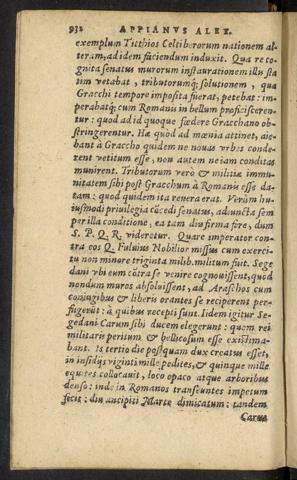 932 APPIANVS ALEX.
exemplum Titthios Celtiberorum nationem al-
teram, ad idem faciendum induxit. Qua re co-
gnita senatus murorum instaurationem illis sta
tim vetabat, tributorumq́; solutionem, qua
Gracchi tempore imposita fuerat, petebat: im-
perabatq́; cum Romanis in bellum proficisceren-
tur: quod ad id quoque fœdere Gracchano ob-
stringerentur. Hæ quod ad mœnia attinet, aie-
bant à Graccho quidem ne nouas vrbes conde-
rent vetitum esse, non autem ne iam conditas
munirent. Tributorum verò & militiæ immu-
nitatem sibi post Gracchum à Romanis esse da-
tam: quod quidem ita reuera erat. Verùm hu
iusmodi priuilegia cōcedi senatus, adiuncta sem
per illa conditione, ea tam diu firma fire, dum
S. P. Q. R. videretur. Quare imperator con-
tra eos Q. Fuluius Nobilior missus cum exerci-
tu non minore triginta milib. militum fuit. Sege
dani vbi eum cōtra se venire cognouissent, quòd
nondum muros absoluissent, ad Araschos cum
coniugibus & liberis orantes se reciperent per-
fugerūt: à quibus recepti sunt. Iidem igitur Se-
gedani Carum sibi ducem elegerunt: quem rei
militaris peritum & bellicosum esse existima-
bant. Is tertio die postquam dux creatus esset,
in insidijs viginti mille pedites, & quinque mille
equites collocauit, loco opaco atque arboribus
denso: inde in Romanos transeuntes impetum
fecit: diu ancipiti Marte dimicatum: tandem
Carus